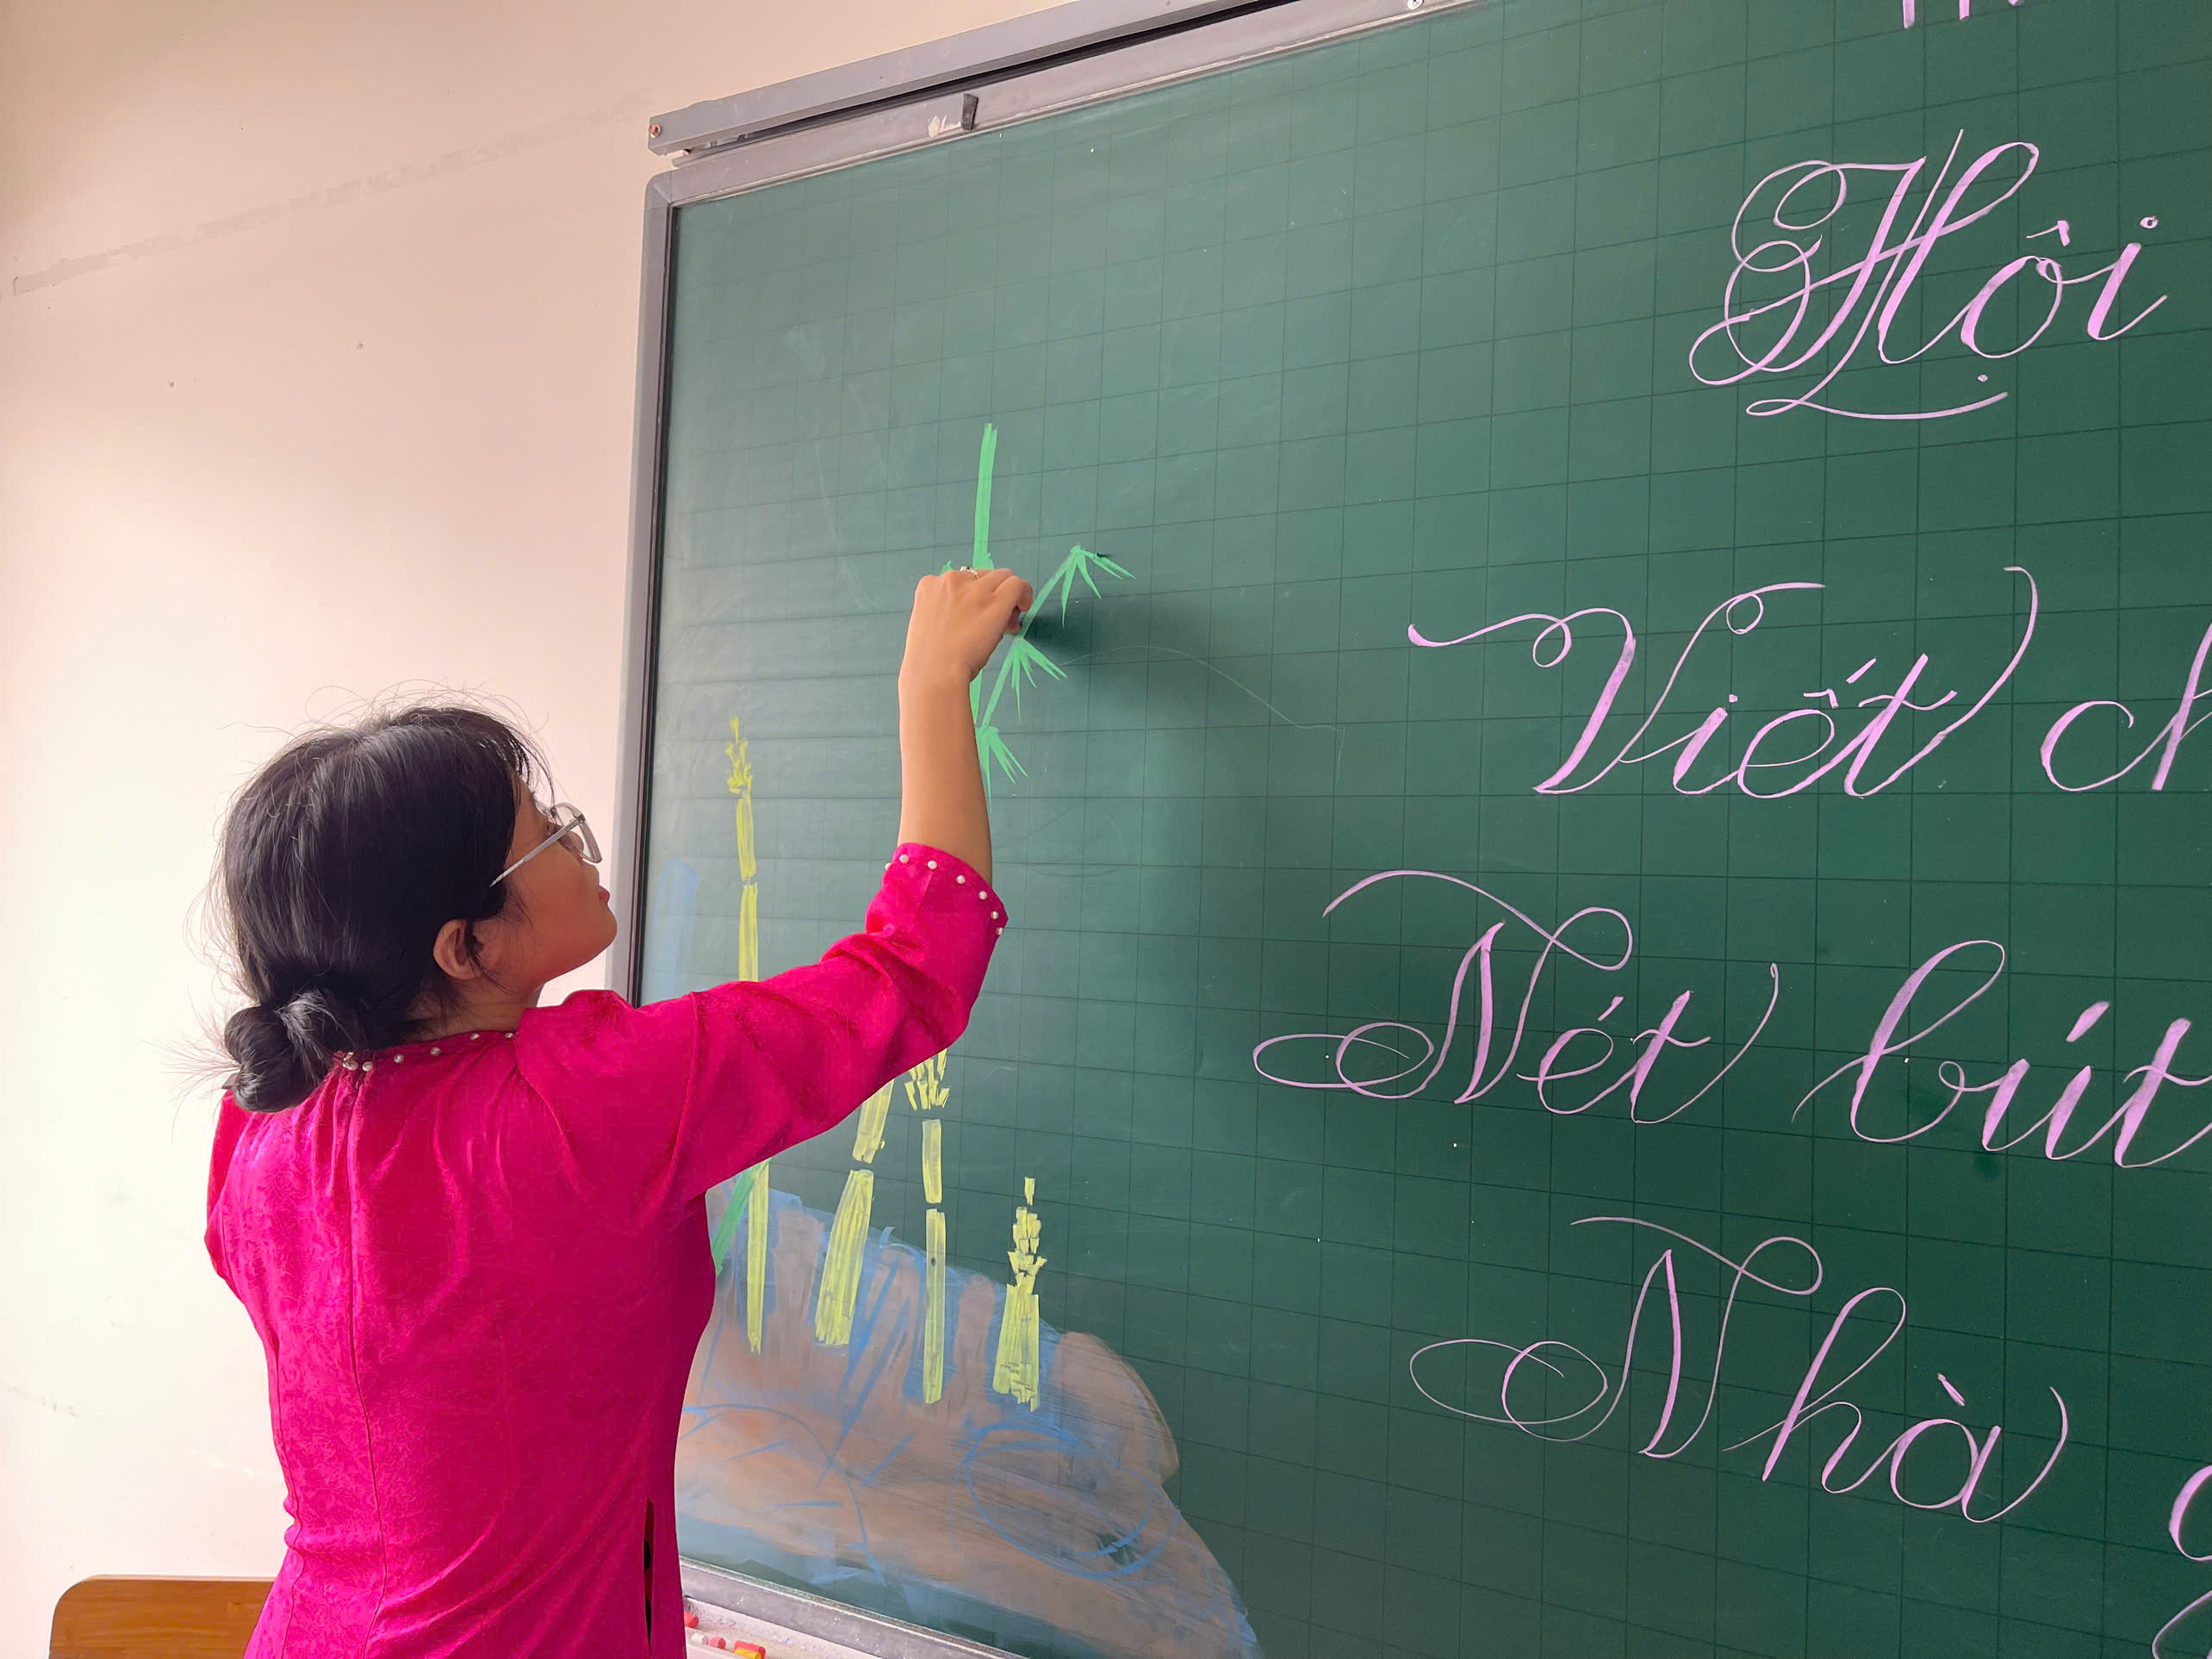 Hội
Viết
Nét bút
Nhà